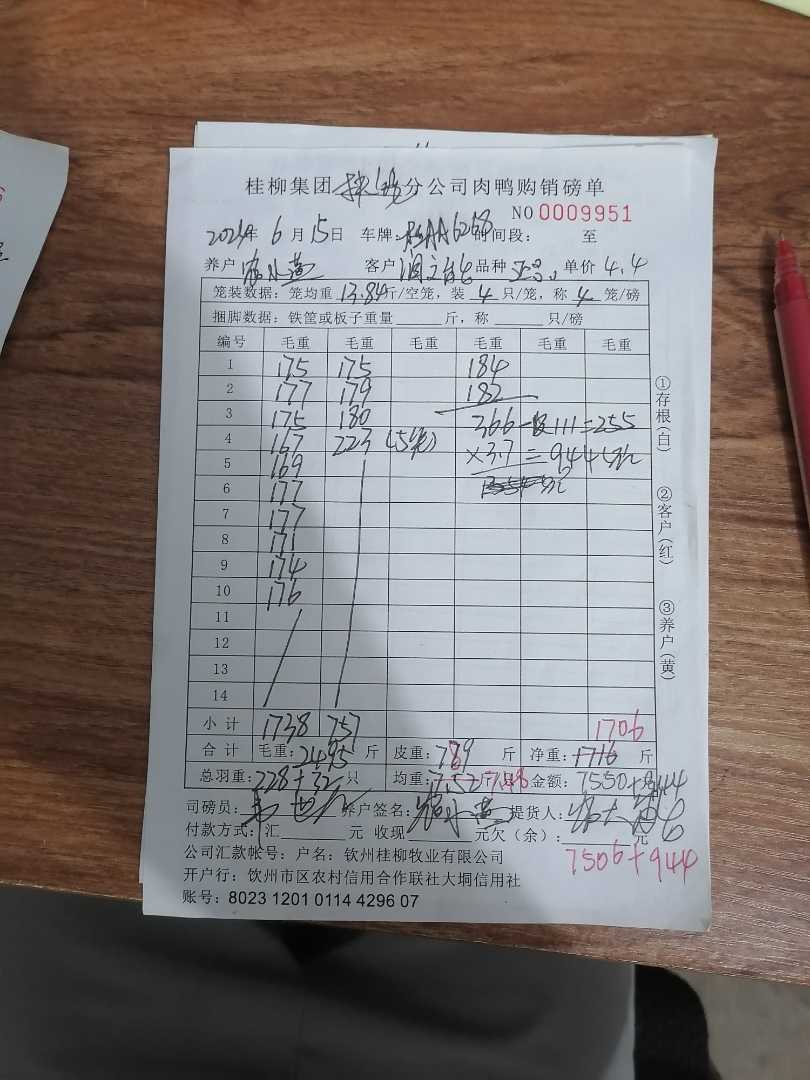 桂柳集团 分公司肉鸭购销磅单
NO 0009951
2024年 6 月 15日 车牌: AA6268 时间段: 至
养户 客户 品种 单价 4.4
笼装数据: 笼均重 13.84斤/空笼, 装 4 只/笼, 称 4 笼/磅
捆脚数据: 铁筐或板子重量 斤, 称 只/磅
编号 毛重 毛重 毛重 毛重 毛重 毛重
1 175 175 184
2 177 179 182
3 175 180 366-111=255
4 167 223 (5笼) ×3.7=944
5 169
6 177
7 177
8 171
9 174
10 176
11
12
13
14
小 计 1738 757 1706
合 计 毛重: 2495 斤 皮重: 789 斤 净重: 1716 斤
总羽重: 228+32 只 均重: 7.52 7.48 金额: 7550+944
司磅员: 养户签名: 提货人:
付款方式: 汇 元 收现 元欠(余): 元
公司汇款帐号: 户名: 钦州桂柳牧业有限公司
7506+944
开户行: 钦州市区农村信用合作联社大垌信用社
账号: 8023 1201 0114 4296 07
①存根(白)
②客户(红)
③养户(黄)